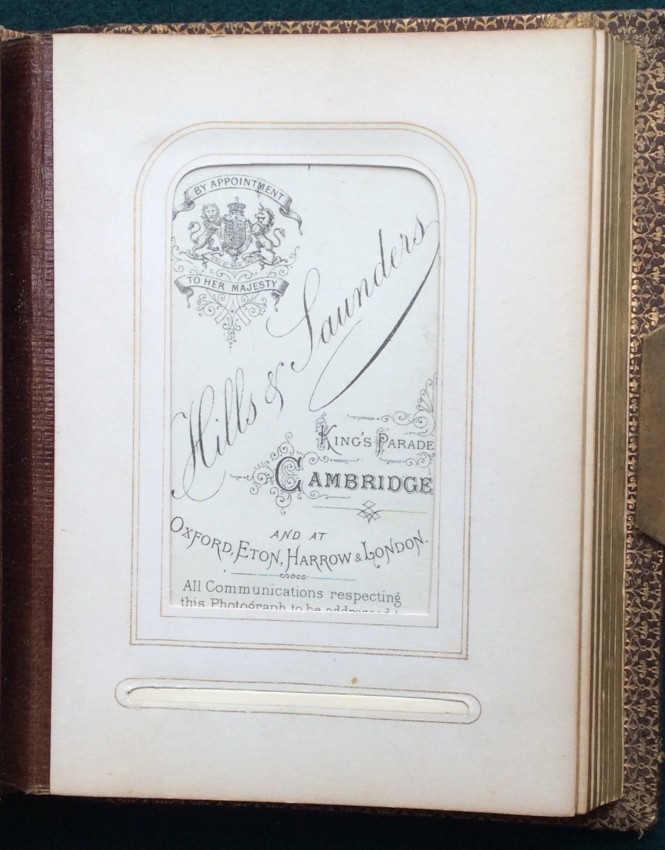 BY APPOINTMENT
TO HER MAJESTY
Hills & Saunders
KING'S PARADE
CAMBRIDGE
AND AT
OXFORD, ETON, HARROW & LONDON.
All Communications respecting
this Photograph to be addressed